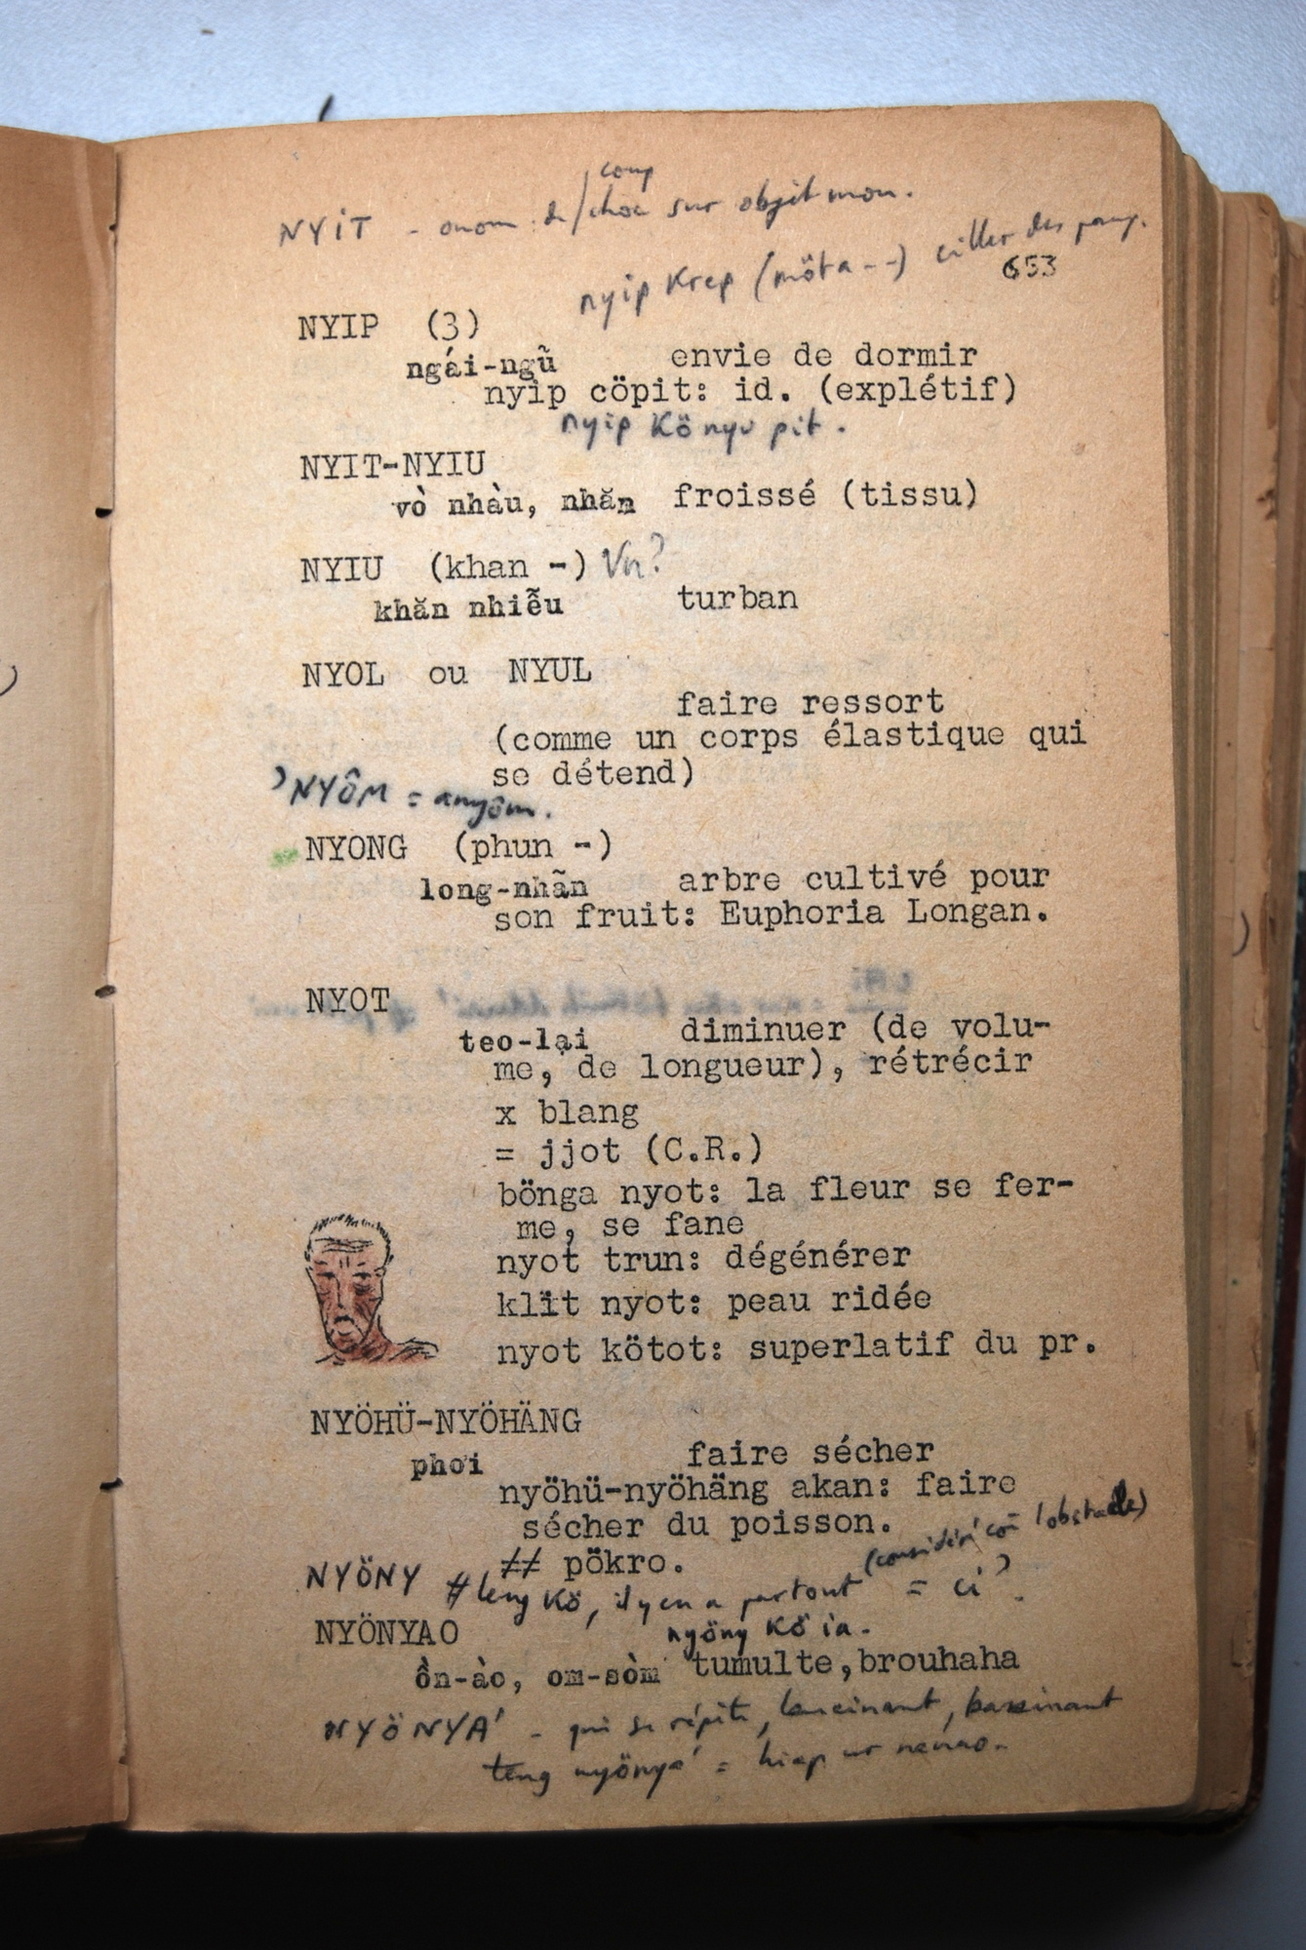 NYIT - onom. de / choc sur objet mou.
coup
nyip Krep (möta --) ciller des paup.
653
NYIP (3)
ngái-ngũ envie de dormir
nyip cöpit: id. (explétif)
nyip Könyupit.
NYIT-NYIU
vò nhàu, nhăn froissé (tissu)
NYIU (khan -) Vn?
khăn nhiễu turban
NYOL ou NYUL
faire ressort
(comme un corps élastique qui
se détend)
'NYÔM = anyôm.
NYONG (phun -)
long-nhãn arbre cultivé pour
son fruit: Euphoria Longan.
NYOT
teo-lại diminuer (de volu-
me, de longueur), rétrécir
x blang
= jjot (C.R.)
bönga nyot: la fleur se fer-
me, se fane
nyot trun: dégénérer
klit nyot: peau ridée
nyot kötot: superlatif du pr.
NYÖHÜ-NYÖHÄNG
phơi faire sécher
nyöhü-nyöhäng akan: faire
sécher du poisson.
≠ pökro.
(considéré cō obstacle)
NYÖNY # leng Kö, il y en a partout = ci'.
nyöny Kö ia.
NYÖNYAO
ồn-ào, om-sòm tumulte, brouhaha
NYÖNYA' - qui se répète, lancinant, bassinant
teng nyönya' = hiap ur nanao.